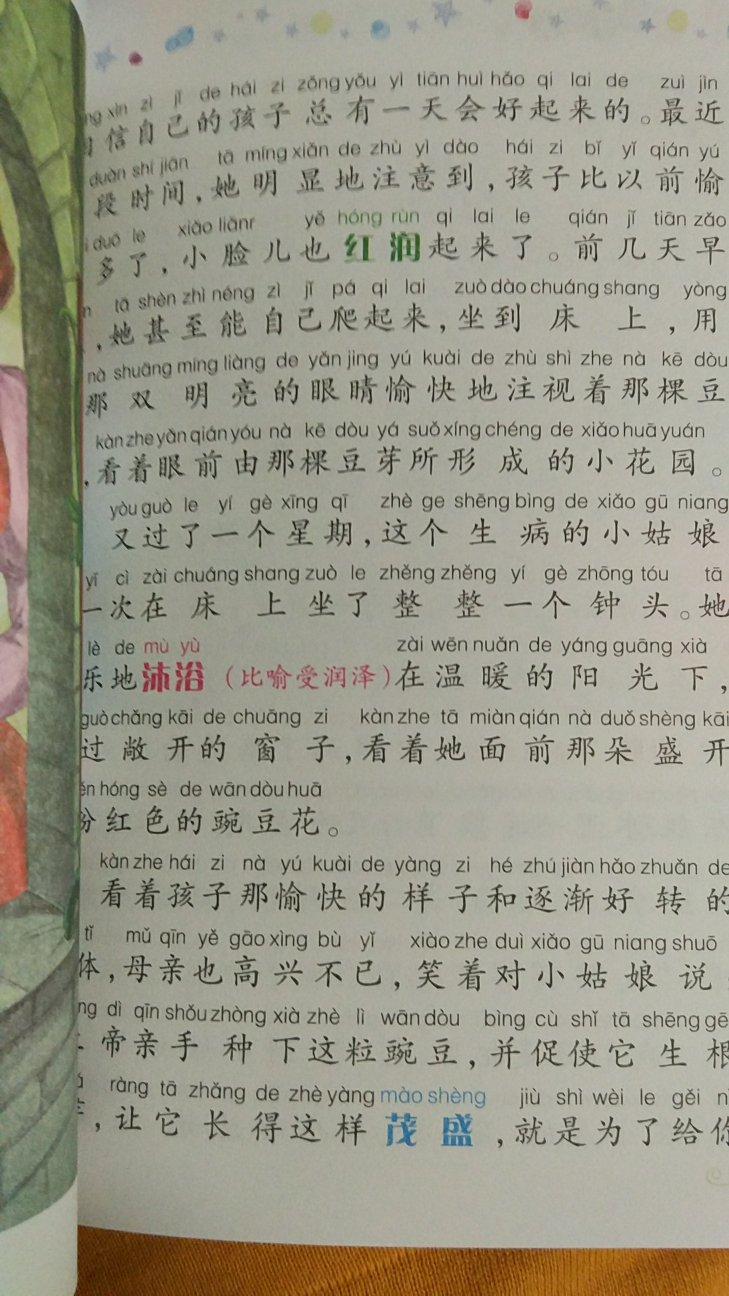 xìn zì jǐ de hái zi zǒng yǒu yì tiān huì hǎo qi lai de zuì jìn
信自己的孩子总有一天会好起来的。最近
duàn shí jiān tā míng xiǎn de zhù yì dào hái zi bǐ yǐ qián yú
段时间,她明显地注意到,孩子比以前愉
duō le xiǎo liǎnr yě hóng rùn qi lai le qián jǐ tiān zǎo
多了,小脸儿也红润起来了。前几天早
tā shèn zhì néng zì jǐ pá qi lai zuò dào chuáng shang yòng
,她甚至能自己爬起来,坐到床上,用
nà shuāng míng liàng de yǎn jìng yú kuài de zhù shì zhe nà kē dòu
那双明亮的眼睛愉快地注视着那棵豆
kàn zhe yǎn qián yóu nà kē dòu yá suǒ xíng chéng de xiǎo huā yuán
,看着眼前由那棵豆芽所形成的小花园。
yòu guò le yí gè xīng qī zhè ge shēng bìng de xiǎo gū niang
又过了一个星期,这个生病的小姑娘
yī cì zài chuáng shang zuò le zhěng zhěng yí gè zhōng tóu tā
一次在床上坐了整整一个钟头。她
lè de mù yù zài wēn nuǎn de yáng guāng xià
乐地沐浴(比喻受润泽)在温暖的阳光下,
guò chǎng kāi de chuāng zi kàn zhe tā miàn qián nà duǒ shèng kāi
过敞开的窗子,看着她面前那朵盛开
hóng sè de wān dòu huā
粉红色的豌豆花。
kàn zhe hái zi nà yú kuài de yàng zi hé zhú jiàn hǎo zhuǎn de
看着孩子那愉快的样子和逐渐好转的
tǐ mǔ qīn yě gāo xìng bù yǐ xiào zhe duì xiǎo gū niang shuō
体,母亲也高兴不已,笑着对小姑娘说
dì qīn shǒu zhòng xià zhè lì wān dòu bìng cù shǐ tā shēng gē
帝亲手种下这粒豌豆,并促使它生根
ràng tā zhǎng de zhè yàng mào shèng jiù shì wèi le gěi n
,让它长得这样茂盛,就是为了给你